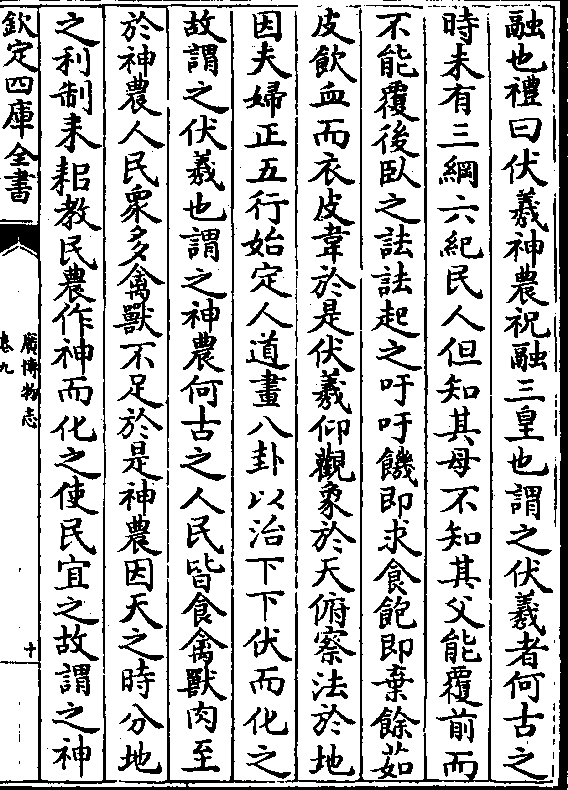 融也禮曰伏羲神農祝融三皇也謂之伏羲者何古之
時未有三綱六紀民人但知其母不知其父能覆前而
不能覆後臥之詓詓起之吁吁饑即求食飽即棄餘茹
皮飲血而衣皮韋於是伏羲仰觀象於天俯察法於地
因夫婦正五行始定人道畫八卦以治下下伏而化之
故謂之伏羲也謂之神農何古之人民皆食禽獸肉至
於神農人民衆多禽獸不足於是神農因天之時分地
之利制耒耜教民農作神而化之使民宜之故謂之神
欽定四庫全書
廣博物志
卷九
十